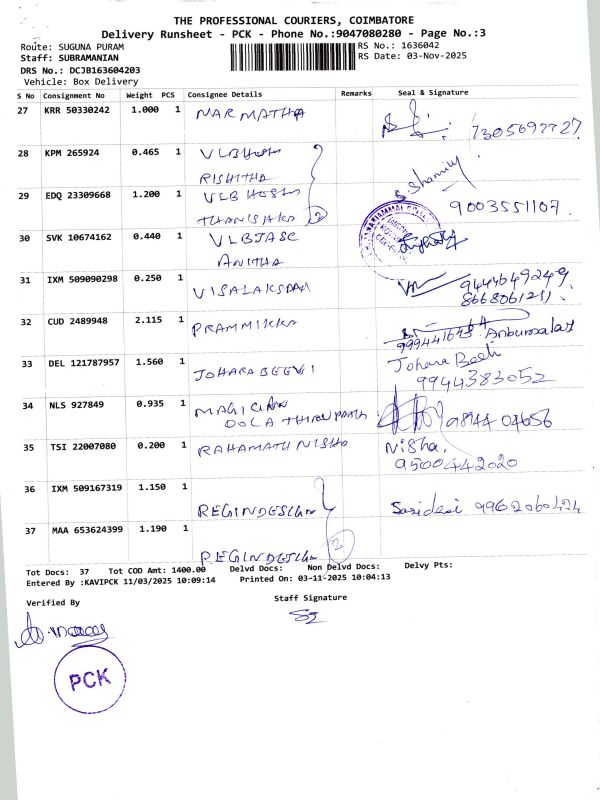 THE PROFESSIONAL COURIERS, COIMBATORE
Delivery Runsheet - PCK - Phone No.:9047080280 - Page No.:3
Route: SUGUNA PURAM
RS No.: 1636042
Staff: SUBRAMANIAN
RS Date: 03-Nov-2025
DRS No.: DCJB163604203
Vehicle: Box Delivery
S No Consignment No Weight PCS Consignee Details Remarks Seal & Signature
27 KRR 50330242 1.000 1 NARMATHA
28 KPM 265924 0.465 1 VLB HOSTL
RISHITHA
S. Shamily
29 EDQ 23309668 1.200 1 VLB HOSTL
2 9003551107.
30 SVK 10674162 0.440 1 VLBJASC
ANITHA
31 IXM 509090298 0.250 1 9444649249
8668061211.
32 CUD 2489948 2.115 1 PRAMMIKKA
33 DEL 121787957 1.560 1 JOHARA BEEVI Johara
9944383052
34 NLS 927849 0.935 1 MAGICIAN
35 TSI 22007080 0.200 1 RAHAMATH NISHA Nisha.
9500442020
36 IXM 509167319 1.150 1 REGINDESIGN
37 MAA 653624399 1.190 1 REGINDESIGN 2
Tot Docs: 37 Tot COD Amt: 1400.00 Delvd Docs: Non Delvd Docs: Delvy Pts:
Entered By :KAVIPCK 11/03/2025 10:09:14 Printed On: 03-11-2025 10:04:13
Verified By
Staff Signature
PCK